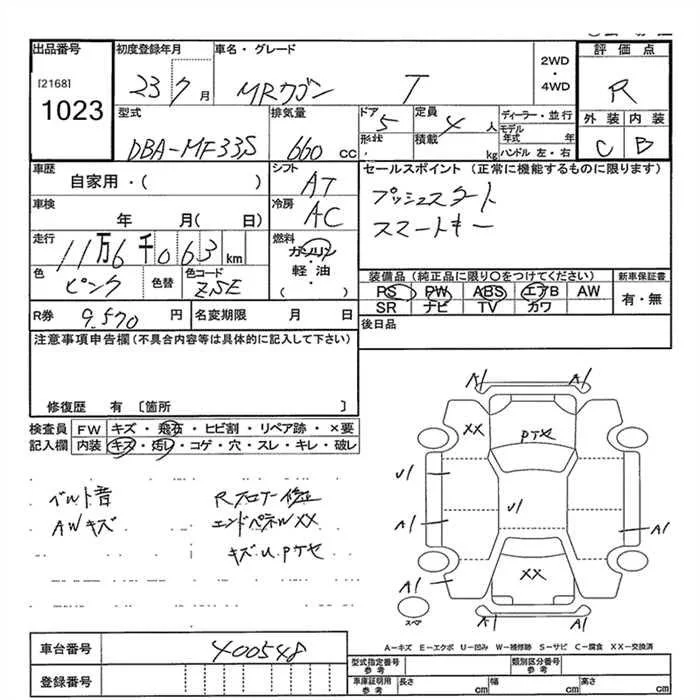 出品番号
[2168]
1023
初度登録年月
23 7月
車名・グレード
MRワゴン T
2WD
・
4WD
評価点
R
外装 内装
C B
型式
DBA-MF33S
排気量
660 cc
ドア 5
形状 ・
定員 4 人
積載 kg
ディーラー・並行
モデル年式 年
ハンドル 左・右
車歴
自家用・( )
シフト
AT
車検
年 月( 日)
冷房
AC
走行
11万6千063km
燃料
ガソリン
軽・油
・( )
色
ピンク
色替
色コード
ZSE
R券 9,570 円
名変期限 月 日
セールスポイント (正常に機能するものに限ります)
プッシュスタート
スマートキー
装備品 (純正品に限り○をつけてください)
PS PW ABS エアB AW
SR ナビ TV カワ
新車保証書
有・無
後日品
注意事項申告欄 (不具合内容等は具体的に記入して下さい)
修復歴 有 〔箇所 〕
検査員記入欄
FW キズ・飛石・ヒビ割・リペア跡・×要
内装 キズ・汚レ・コゲ・穴・スレ・キレ・破レ
ベルト音
AWキズ
Rフロアー修正
エンドパネルXX
キズU Pテヤ
A1 A1
XX
Pテヤ
U1
U1
A1
A1
XX
A1
A1 A1
スペア
A−キズ E−エクボ U−凹み W−補修跡 S−サビ C−腐食 XX−交換済
車台番号 400548
登録番号
型式指定番号 参考
類別区分番号 参考
車庫証明用 参考
長さ cm
幅 cm
高さ cm